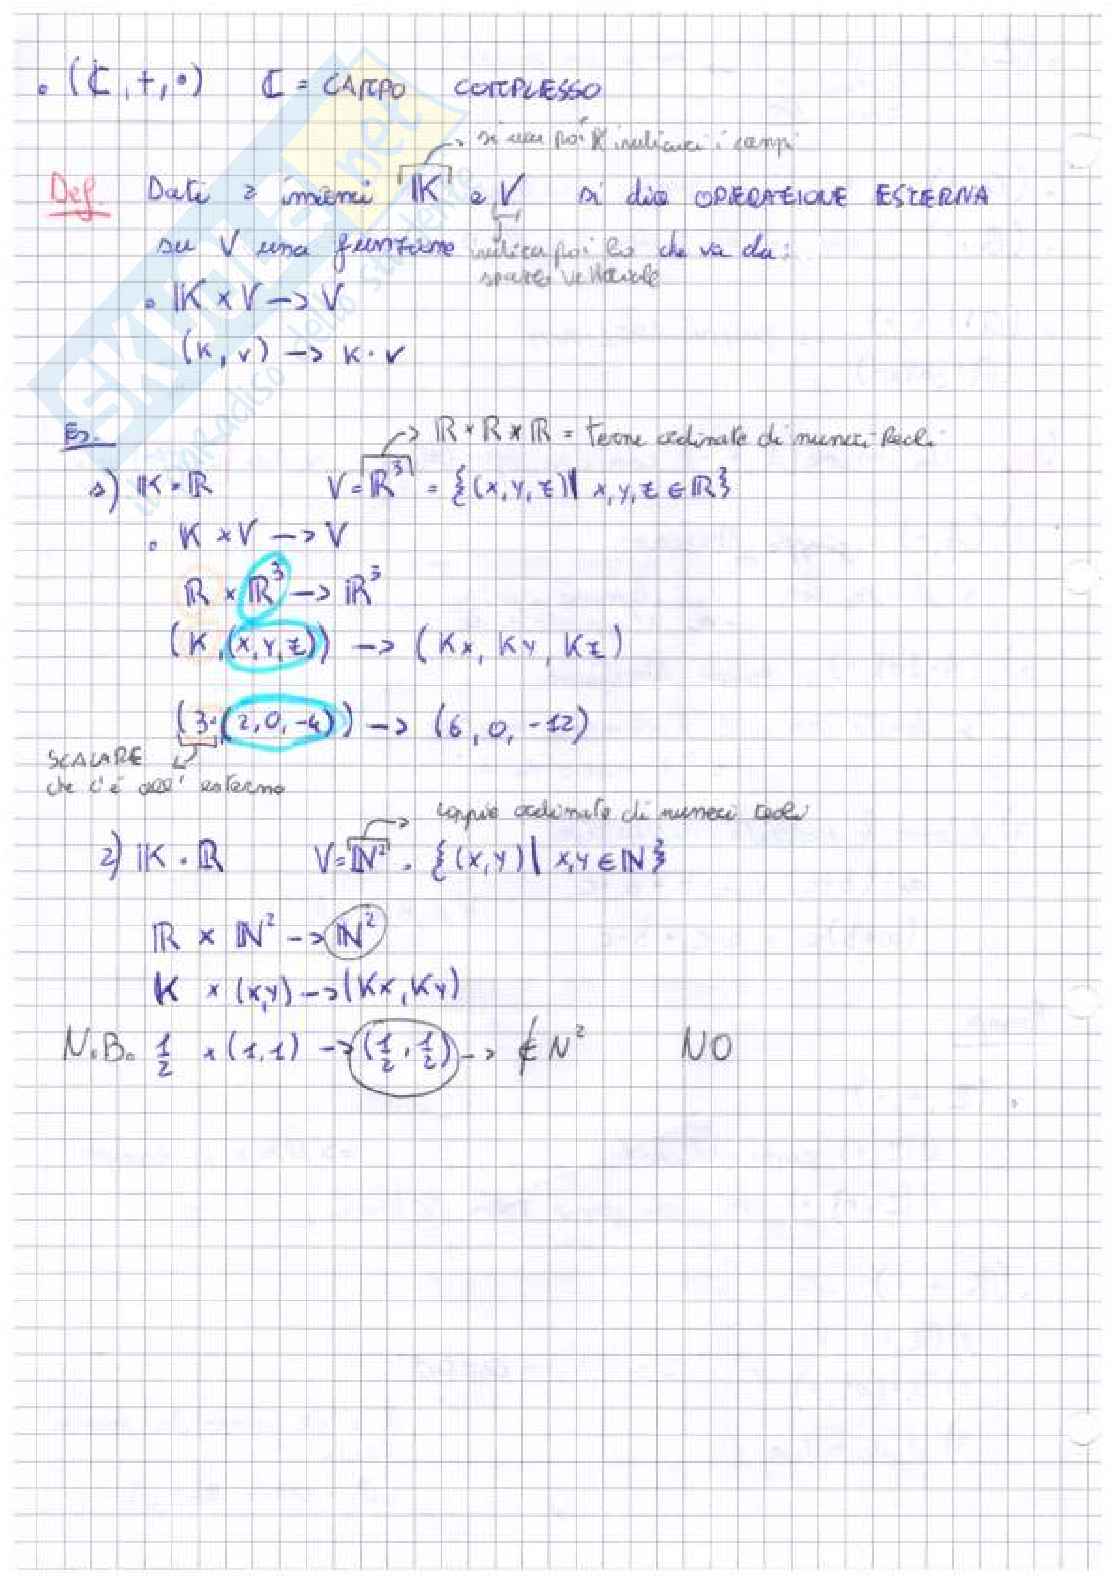 • (ℂ, +, •) ℂ = CAMPO COMPLESSO
→ si usa poi x indicare i campi
Def. Dati 2 insiemi 𝕂 e V si dice OPERAZIONE ESTERNA
su V una funzione che va da:
indica poi lo
spazio vettoriale
• 𝕂 × V → V
(K, v) → K · v
Es.
→ ℝ × ℝ × ℝ = terne ordinate di numeri Reali
1) 𝕂 = ℝ V = ℝ³ = {(x, y, z) | x, y, z ∈ ℝ}
• K × V → V
ℝ × ℝ³ → ℝ³
(K, (x, y, z)) → (Kx, Ky, Kz)
(3·(2, 0, -4)) → (6, 0, -12)
SCALARE
che c'è all'esterno
→ coppie ordinate di numeri reali
2) 𝕂 = ℝ V = ℕ² = {(x, y) | x, y ∈ ℕ}
ℝ × ℕ² → ℕ²
K × (x, y) → (Kx, Ky)
N.B. 1/2 × (1, 1) → (1/2, 1/2) → ∉ N² NO
SKUOLA.net
il paradiso dello studente